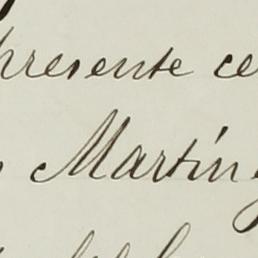 presente ce
Martín